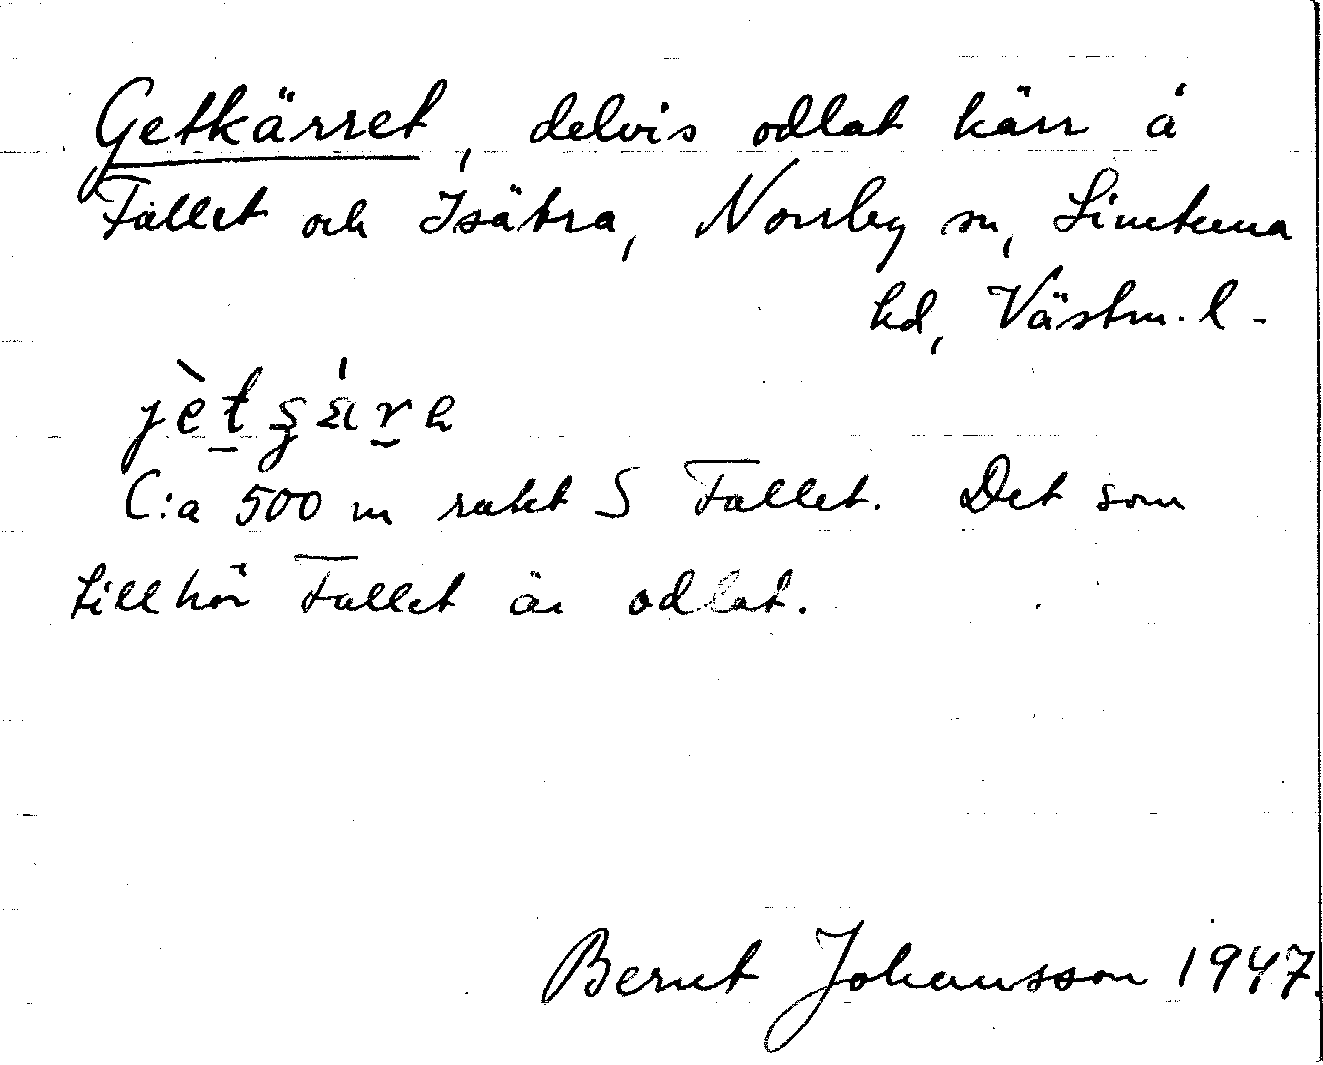 Getkärret, delvis odlat kärr å
Fallet och Isätra, Norrby sn, Simtuna
hd, Västm. l.
jètʂá̱r̯a
C:a 500 m rakt S Fallet. Det som
tillhör Fallet är odlat.
Bernt Johansson 1947.